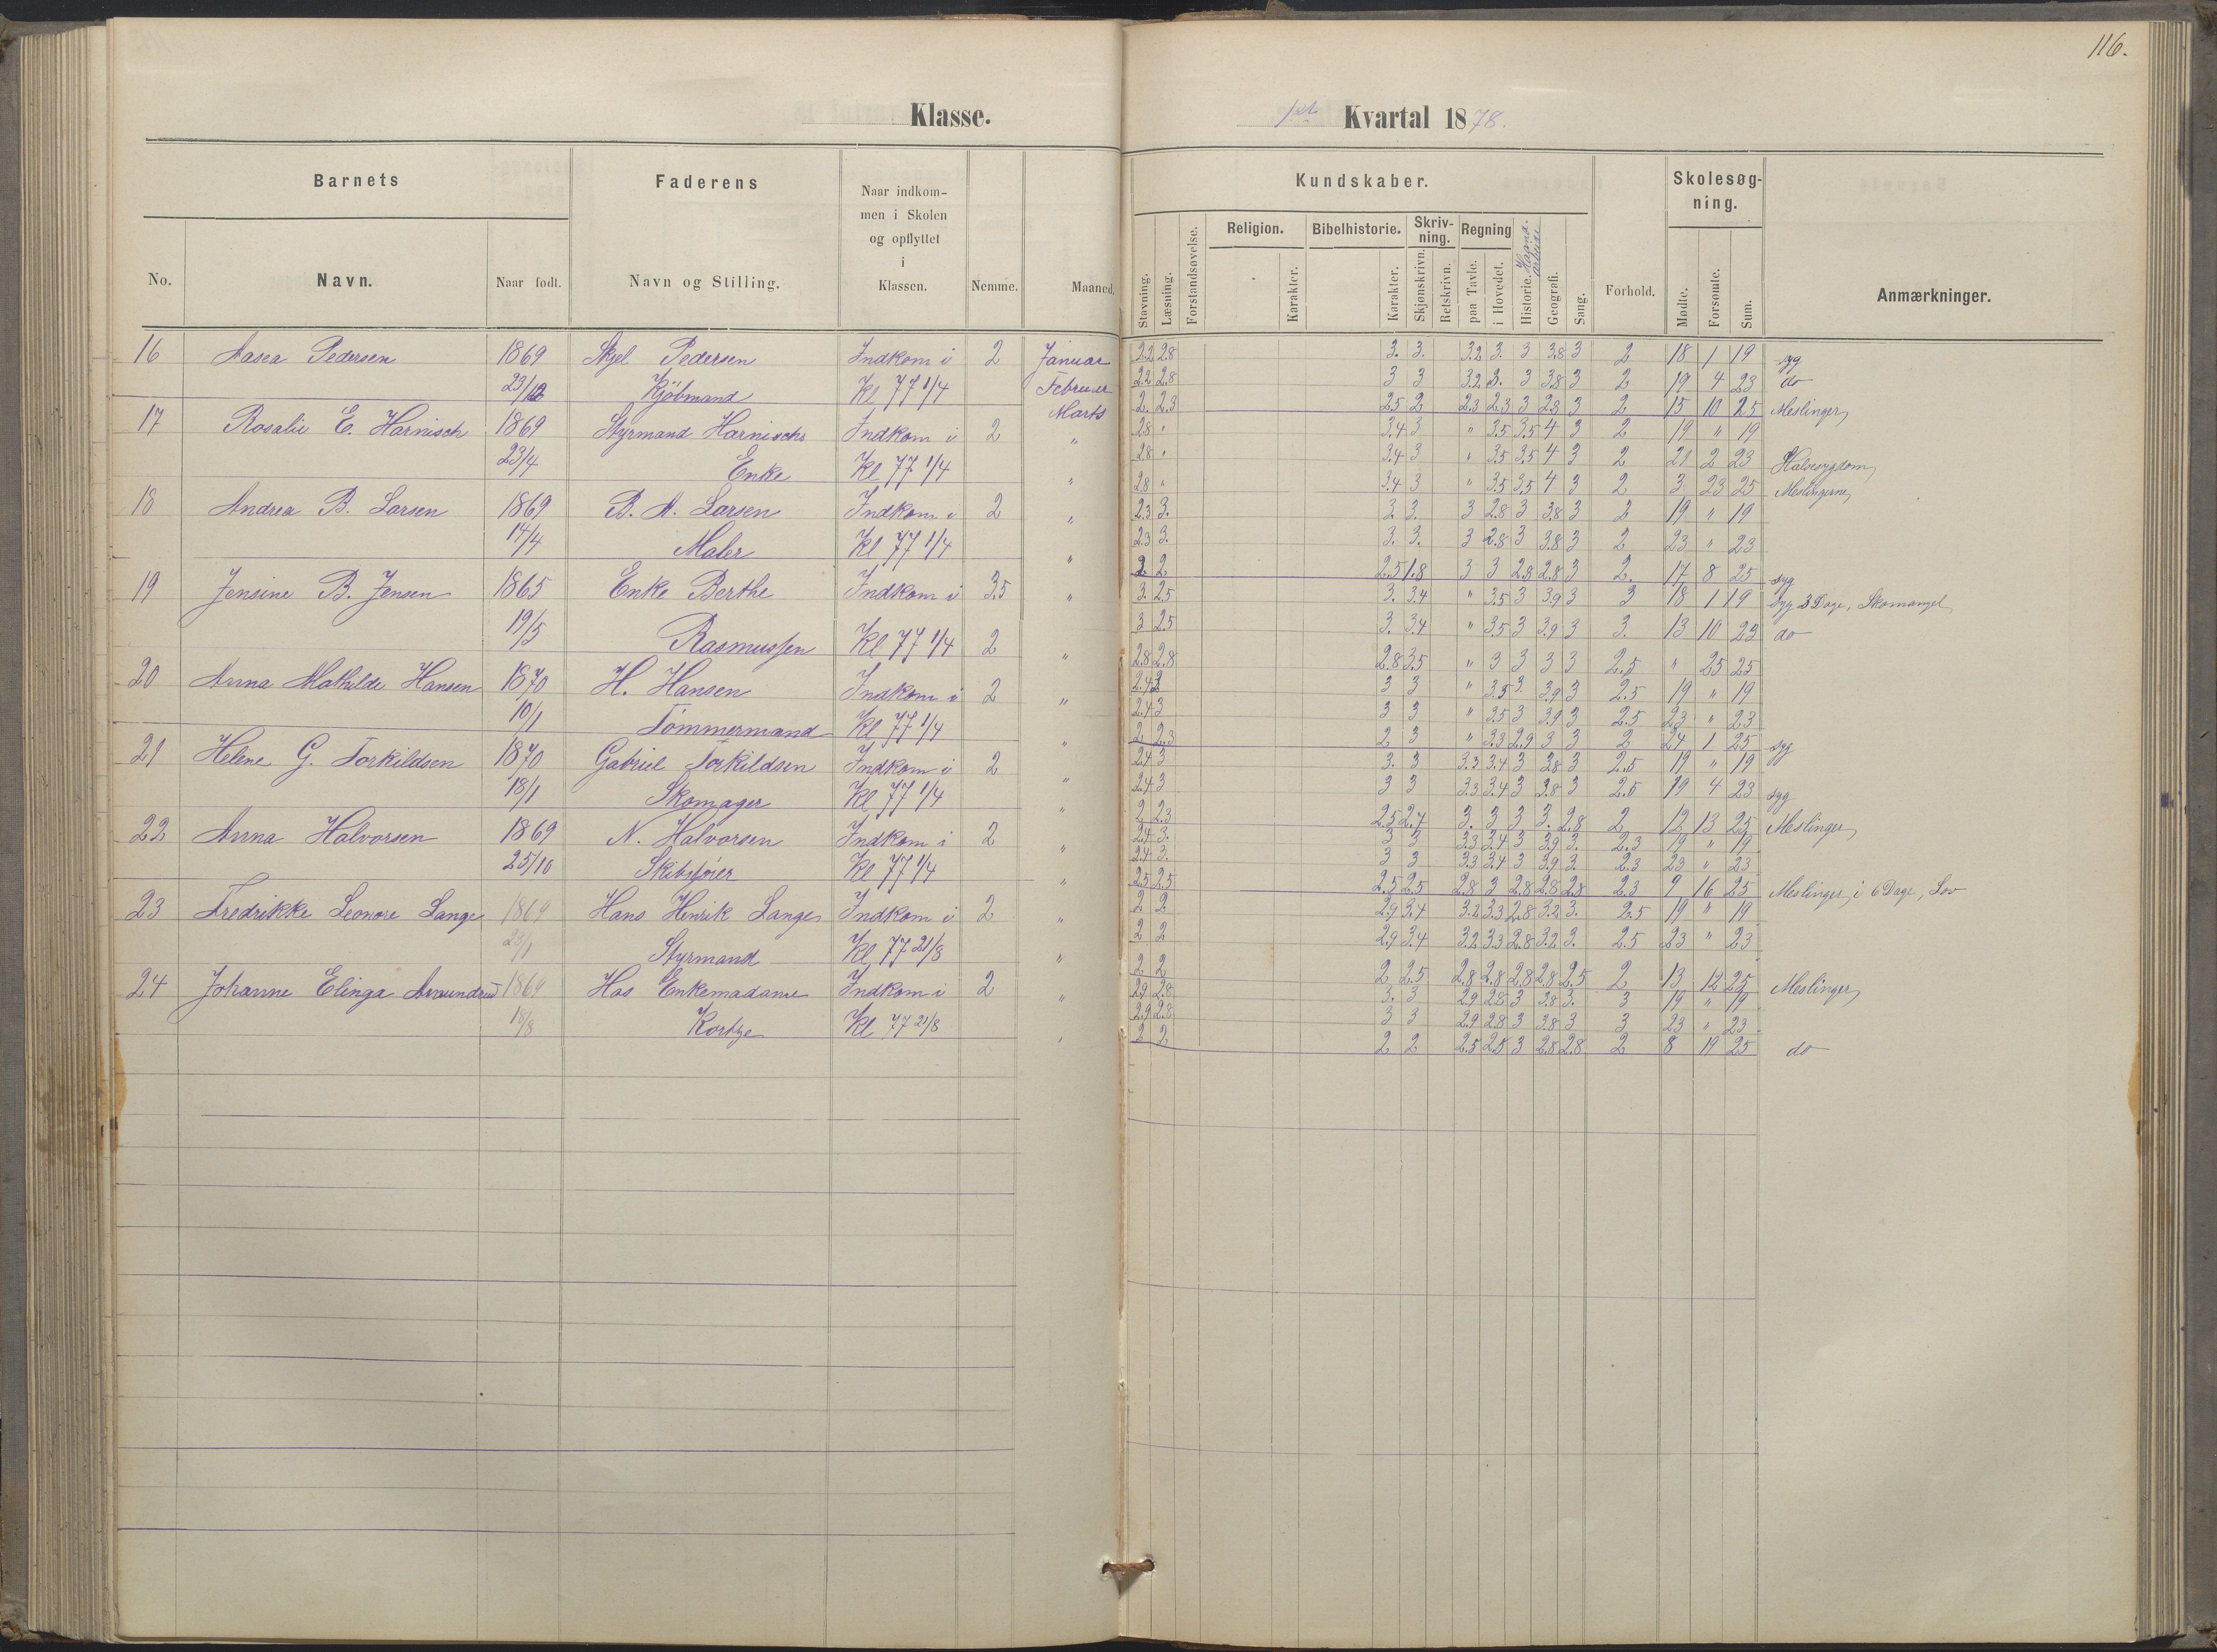 116.
Klasse.
1ste Kvartal 1878.
Barnets
Faderens
Naar indkommen i Skolen og opflyttet i Klassen.
Nemme.
Maaned.
No.
Navn.
Naar født.
Navn og Stilling.
Kundskaber.
Skolesøgning.
Stavning.
Læsning.
Forstandsøvelse.
Religion.
Karakter.
Bibelhistorie.
Karakter.
Skrivning.
Skjønskrivn.
Retskrivn.
Regning
paa Tavle.
i Hovedet.
Historie. Haandarbeide
Geografi.
Sang.
Forhold.
Mødte.
Forsømte.
Sum.
Anmærkninger.
16 Aasea Pedersen 1869 Skjel Pedersen Indkom i 2 Januar 2.2 2.8 3. 3. 3.2 3. 3 3.8 3 2 18 1 19 syg
23/12 Kjöbmand Kl 77 1/4 Februar 2.2 2.8 3 3 3.2 3. 3 3.8 3 2 19 4 23 do
Marts 2. 2.3 2.5 2 2.3 2.3 3 2.8 3 2 15 10 25 Meslinger
17 Rosalie E. Harnisch 1869 Styrmand Harnischs Indkom i 2 " 2.8 " 3.4 3 " 3.5 3.5 4 3 2 19 " 19
23/4 Enke Kl 77 1/4 " 2.8 " 3.4 3 " 3.5 3.5 4 3 2 21 2 23 Halssygdom
" 2.8 " 3.4 3 " 3.5 3.5 4 3 2 3 23 25 Meslingerne
18 Andrea B. Larsen 1869 B. A. Larsen Indkom i 2 " 2.3 3. 3. 3. 3 2.8 3 3.8 3 2 19 " 19
14/4 Maler Kl 77 1/4 " 2.3 3. 3. 3. 3 2.8 3 3.8 3 2 23 " 23
2 2 2.5 1.8 3 3 2.8 2.8 3 2. 17 8 25 syg
19 Jensine B. Jensen 1865 Enke Berthe Indkom i 3.5 " 3. 2.5 3. 3.4 " 3.5 3 3.9 3 3 18 1 19 syg 3 Dage, Skomangel
19/5 Rasmussen Kl 77 1/4 2 " 3 2.5 3. 3.4 " 3.5 3 3.9 3 3. 13 10 23 do
2.8 2.8 2.8 3.5 " 3 3 3 3 2.5 " 25 25
20 Anna Mathilde Hansen 1870 H. Hansen Indkom i 2 " 2.4 3 3 3 " 3.5 3. 3.9 3 2.5 19 " 19
10/1 Tömmermand Kl 77 1/4 " 2.4 3 3 3 " 3.5 3 3.9 3 2.5 23 " 23
2 2.3 2 3 " 3.3 2.9 3 3 2 24 1 25 syg
21 Helene G. Torkildsen 1870 Gabriel Torkildsen Indkom i 2 " 2.4 3 3. 3 3.3 3.4 3 3.8 3 2.5 19 " 19
18/1 Skomager Kl 77 1/4 " 2.4 3 3 3 3.3 3.4 3 3.8 3 2.5 19 4 23 syg
2 2.3 2.5 2.4 3. 3 3 3. 2.8 2 12 13 25 Meslinger
22 Anna Halvorsen 1869 N. Halvorsen Indkom i 2 " 2.4 3. 3 3 3.3 3.4 3 3.9 3. 2.3 19 " 19
25/10 Skibsförer Kl 77 1/4 " 2.4 3. 3 3 3.3 3.4 3 3.9 3. 2.3 23 " 23
2.5 2.5 2.5 2.5 2.8 3 2.8 2.8 2.8 2.3 9 16 25 Meslinger, i 6 Dage, Lov
23 Fredrikke Leonore Lange 1869 Hans Henrik Lange Indkom i 2 " 2 2 2.9 3.4 3.2 3.3 2.8 3.2 3. 2.5 19 " 19
28/1 Styrmand Kl 77 21/8 " 2 2 2.9 3.4 3.2 3.3 2.8 3.2 3. 2.5 23 " 23
2 2 2 2.5 2.8 2.8 2.8 2.8 2.5 2 13 12 25 Meslinger
24 Johanne Elinga 1869 Hos Enkemadame Indkom i 2 " 2.9 2.8 3. 3 2.9 2.8 3 3.8 3. 3 19 " 19
18/8 Kl 77 21/8 " 2.9 2.8 3 3 2.9 2.8 3 3.8 3 3 23 " 23
2 2 2 2 2.5 2.5 3 2.8 2.8 2 8 19 25 do